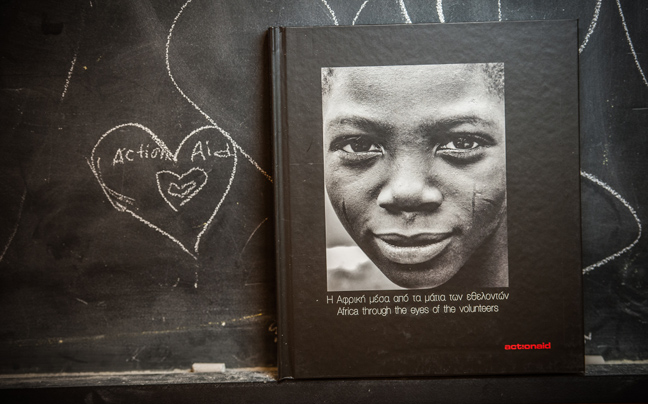 Action Aid
Η Αφρική μέσα από τα μάτια των εθελοντών
Africa through the eyes of the volunteers
actionaid